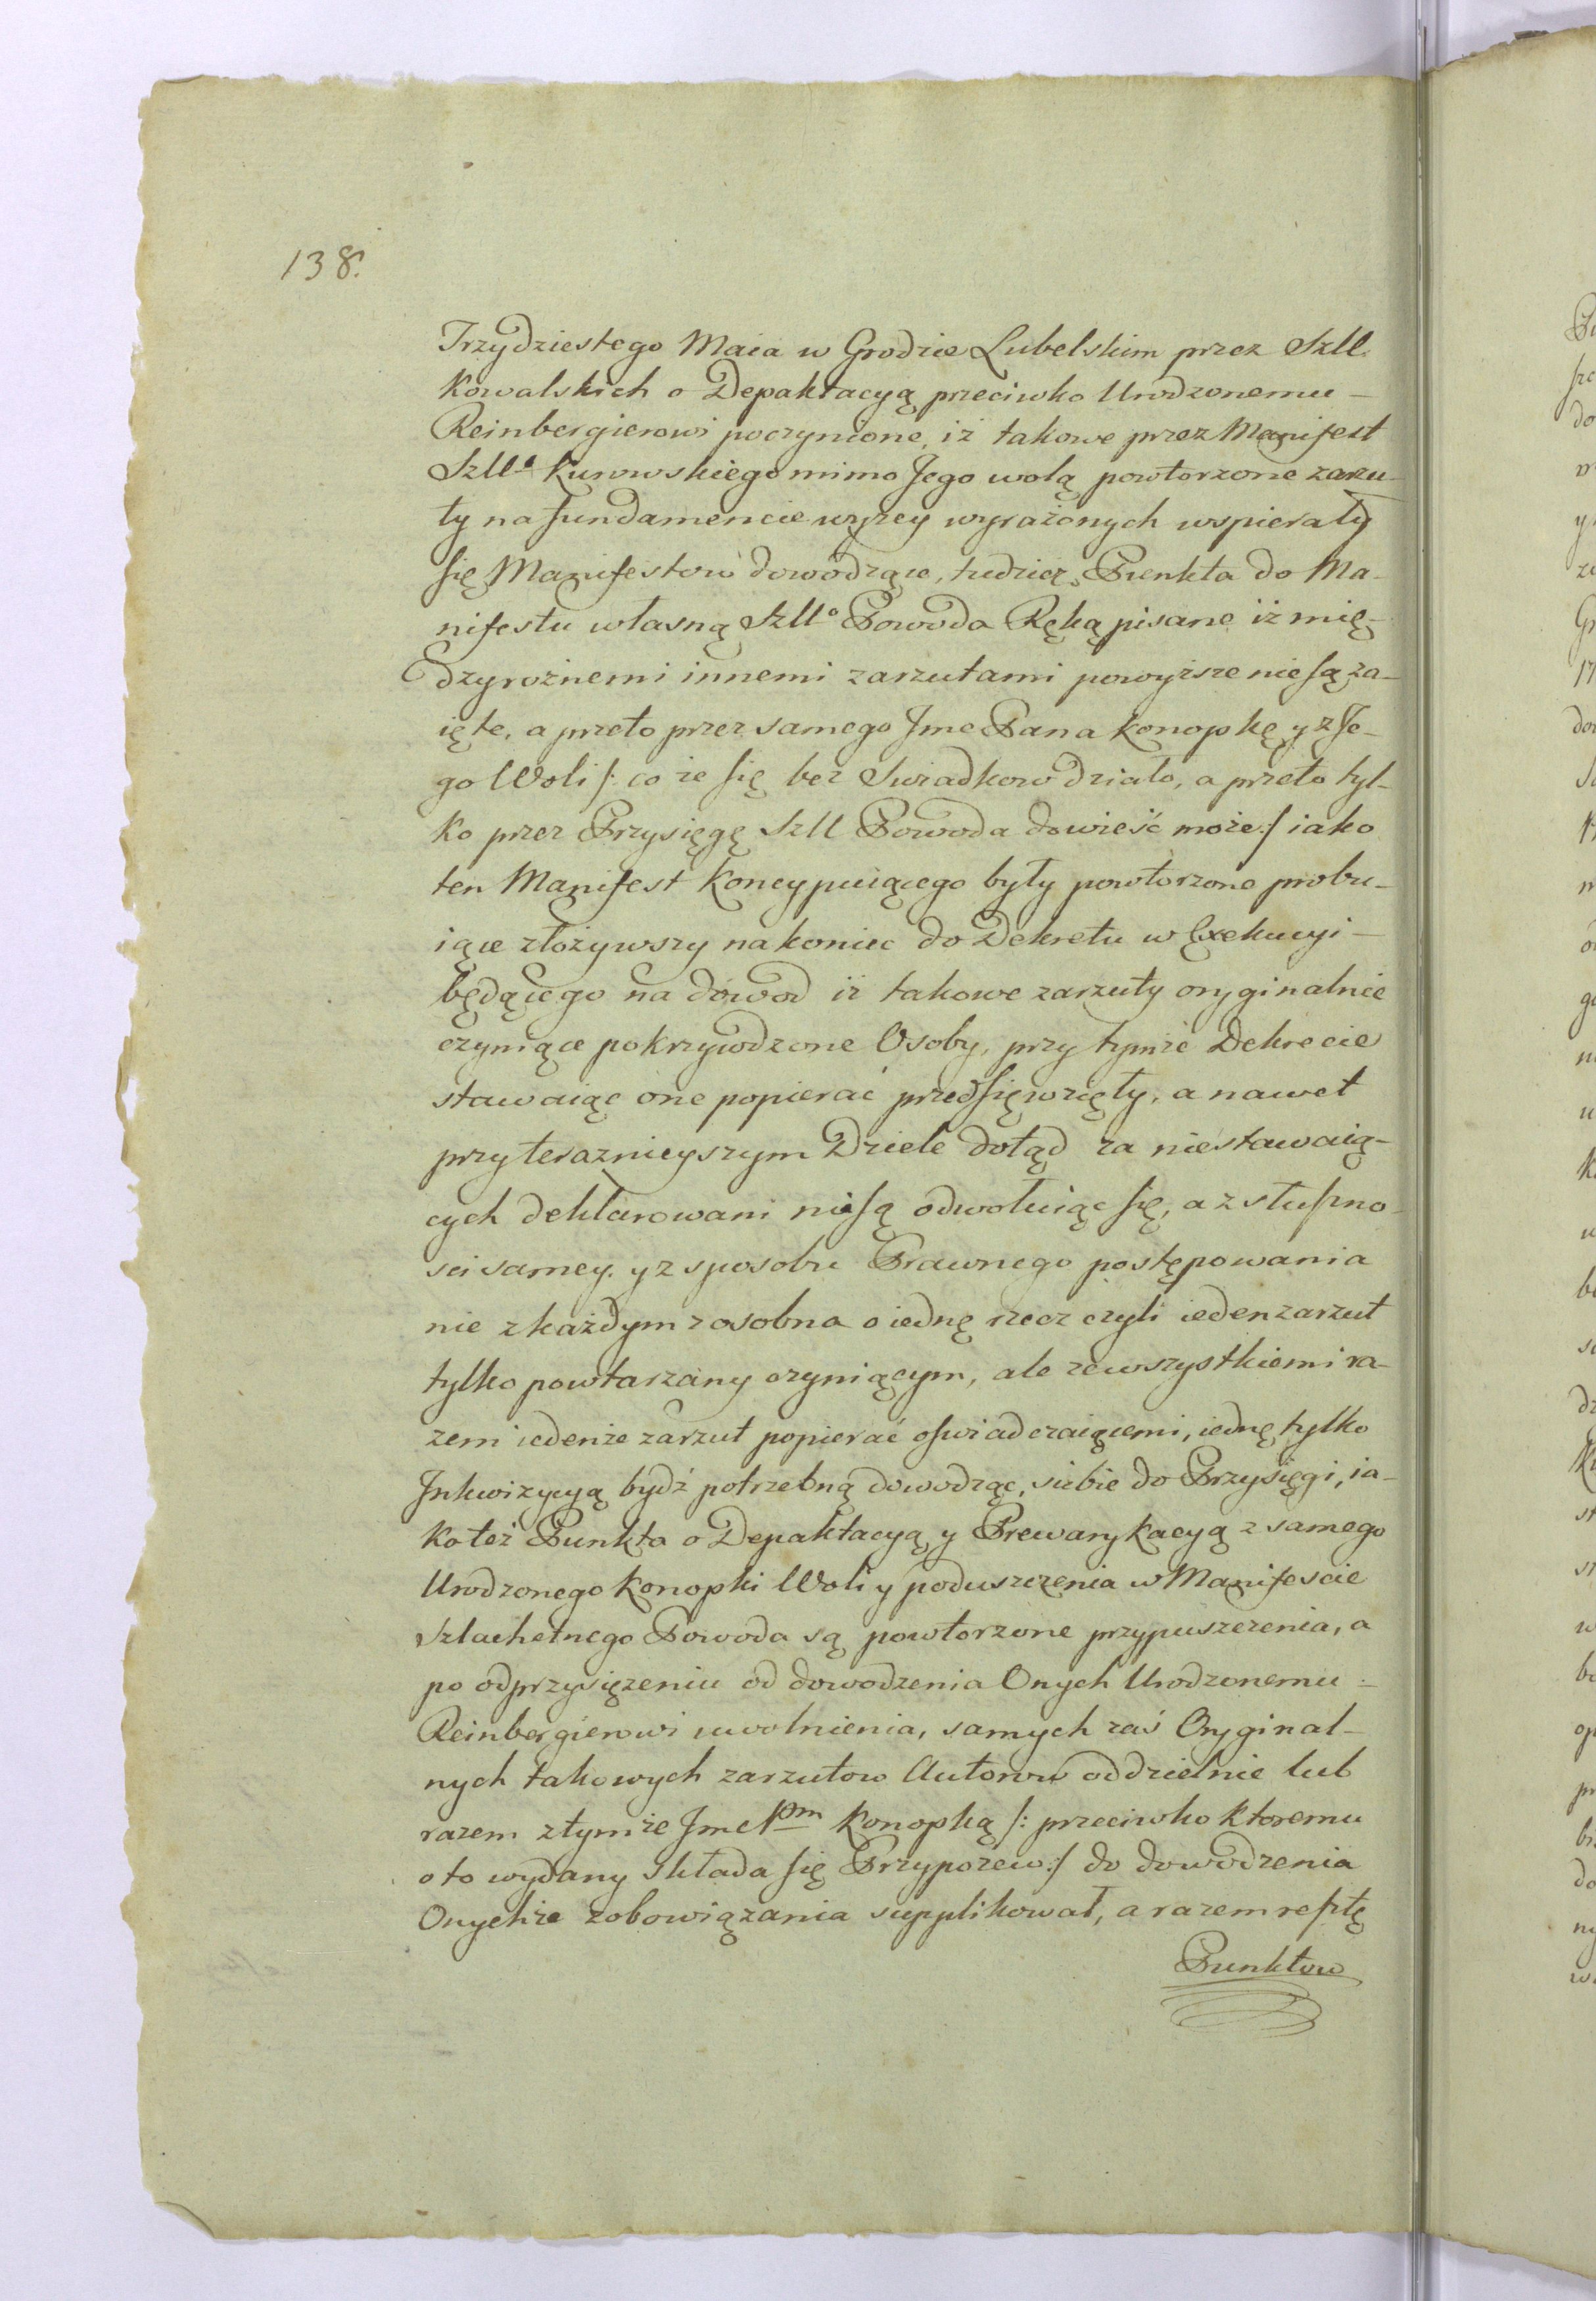 138.
Trzydziestego Maia w Grodzie Lubelskim przez Szll.
Kowalskich o Depaktacyą przeciwko Urodzonemu –
Reinbergierowi poczynione, iż takowe przez Manifest
Szllo Kurowskiego mimo Jego wolą powtorzone zarzu-
ty na fundamencie wyzey wyrażonych wspierały
się Manifestow dowodzące, tudziez Punkta do Ma-
nifestu własną Szllo Powoda Ręką pisane iż mię-
dzy rożnemi innemi zarzutami powyższe nie są za-
ięte, a przeto przez samego Jmc Pana Konopkę y z Je-
go Woli /: co że się bez Swiadkow działo, a przeto tyl-
ko przez Przysięgę Szll Powoda dowieść może :/ iako
ten Manifest Koncypuiącego były powtorzone probu-
iące złożywszy nakoniec do Dekretu w Exekucyi –
będącego na dowod iż takowe zarzuty oryginalnie
czyniące pokrzywdzone Osoby, przy tymże Dekrecie
stawaiąc one popierać przedsięwzięły, a nawet
przy teraznieyszym Dziele dotąd za niestawaią-
cych deklarowani nie są odwołuiąc się, a z słuszno-
sci samey y z sposobu Prawnego postępowania
nie z każdym z osobna o iednę rzecz czyli ieden zarzut
tylko powtarzany czyniącym, ale ze wszystkiemi ra-
zem iedenże zarzut popierać oswiadczaiącemi, iednę tylko
Inkwizycyą bydź potrzebną dowodząc, siebie do Przysięgi, ia-
ko też Punkta o Depaktacyą y Prewarykacyą z samego
Urodzonego Konopki Woli y poduszczenia w Manifescie
Szlachetnego Powoda są powtorzone przypuszczenia, a
po odprzysiężeniu od dowodzenia Onych Urodzonemu
Reinbergierowi uwolnienia, samych zaś Oryginal-
nych takowych zarzutow Autorow oddzielnie lub
razem z tymże Jmc Pm Konopką /: przeciwko ktoremu
o to wydany Składa się Przypozew :/ do dowodzenia
Onychże zobowiązania supplikował, a razem resztę
Punktow